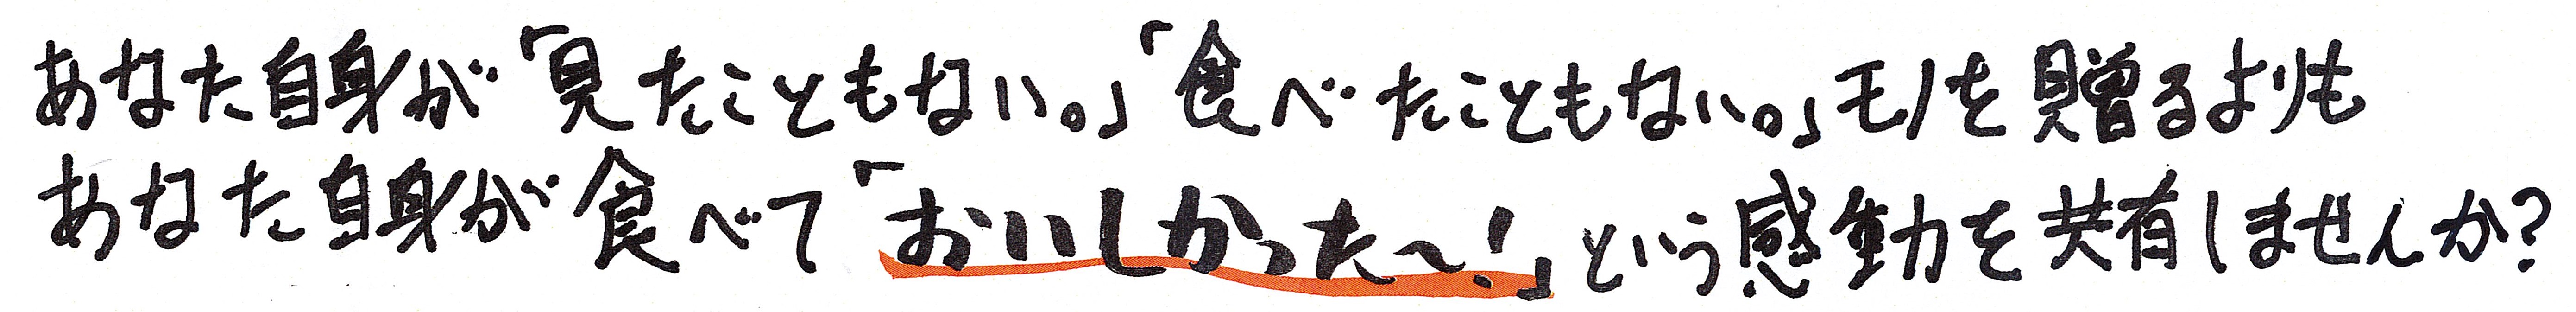 あなた自身が「見たこともない。」「食べたこともない。」モノを贈るよりも
あなた自身が食べて「おいしかった～！」という感動を共有しませんか？